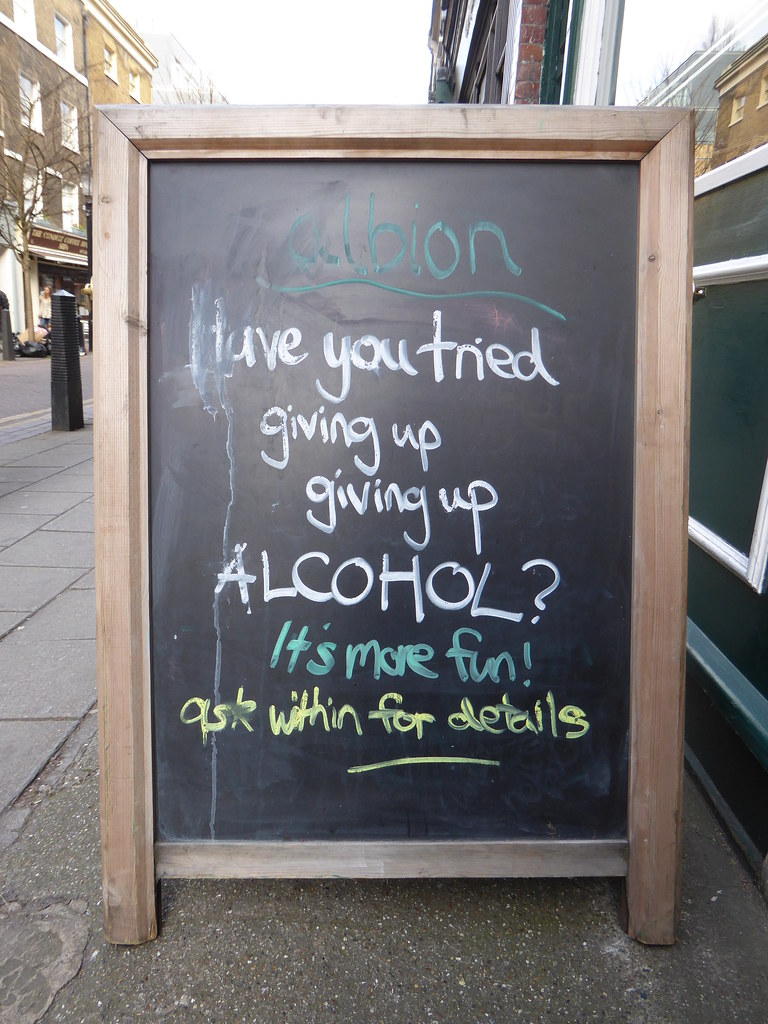 albion
Have you tried
giving up
giving up
ALCOHOL?
It's more fun!
ask within for details